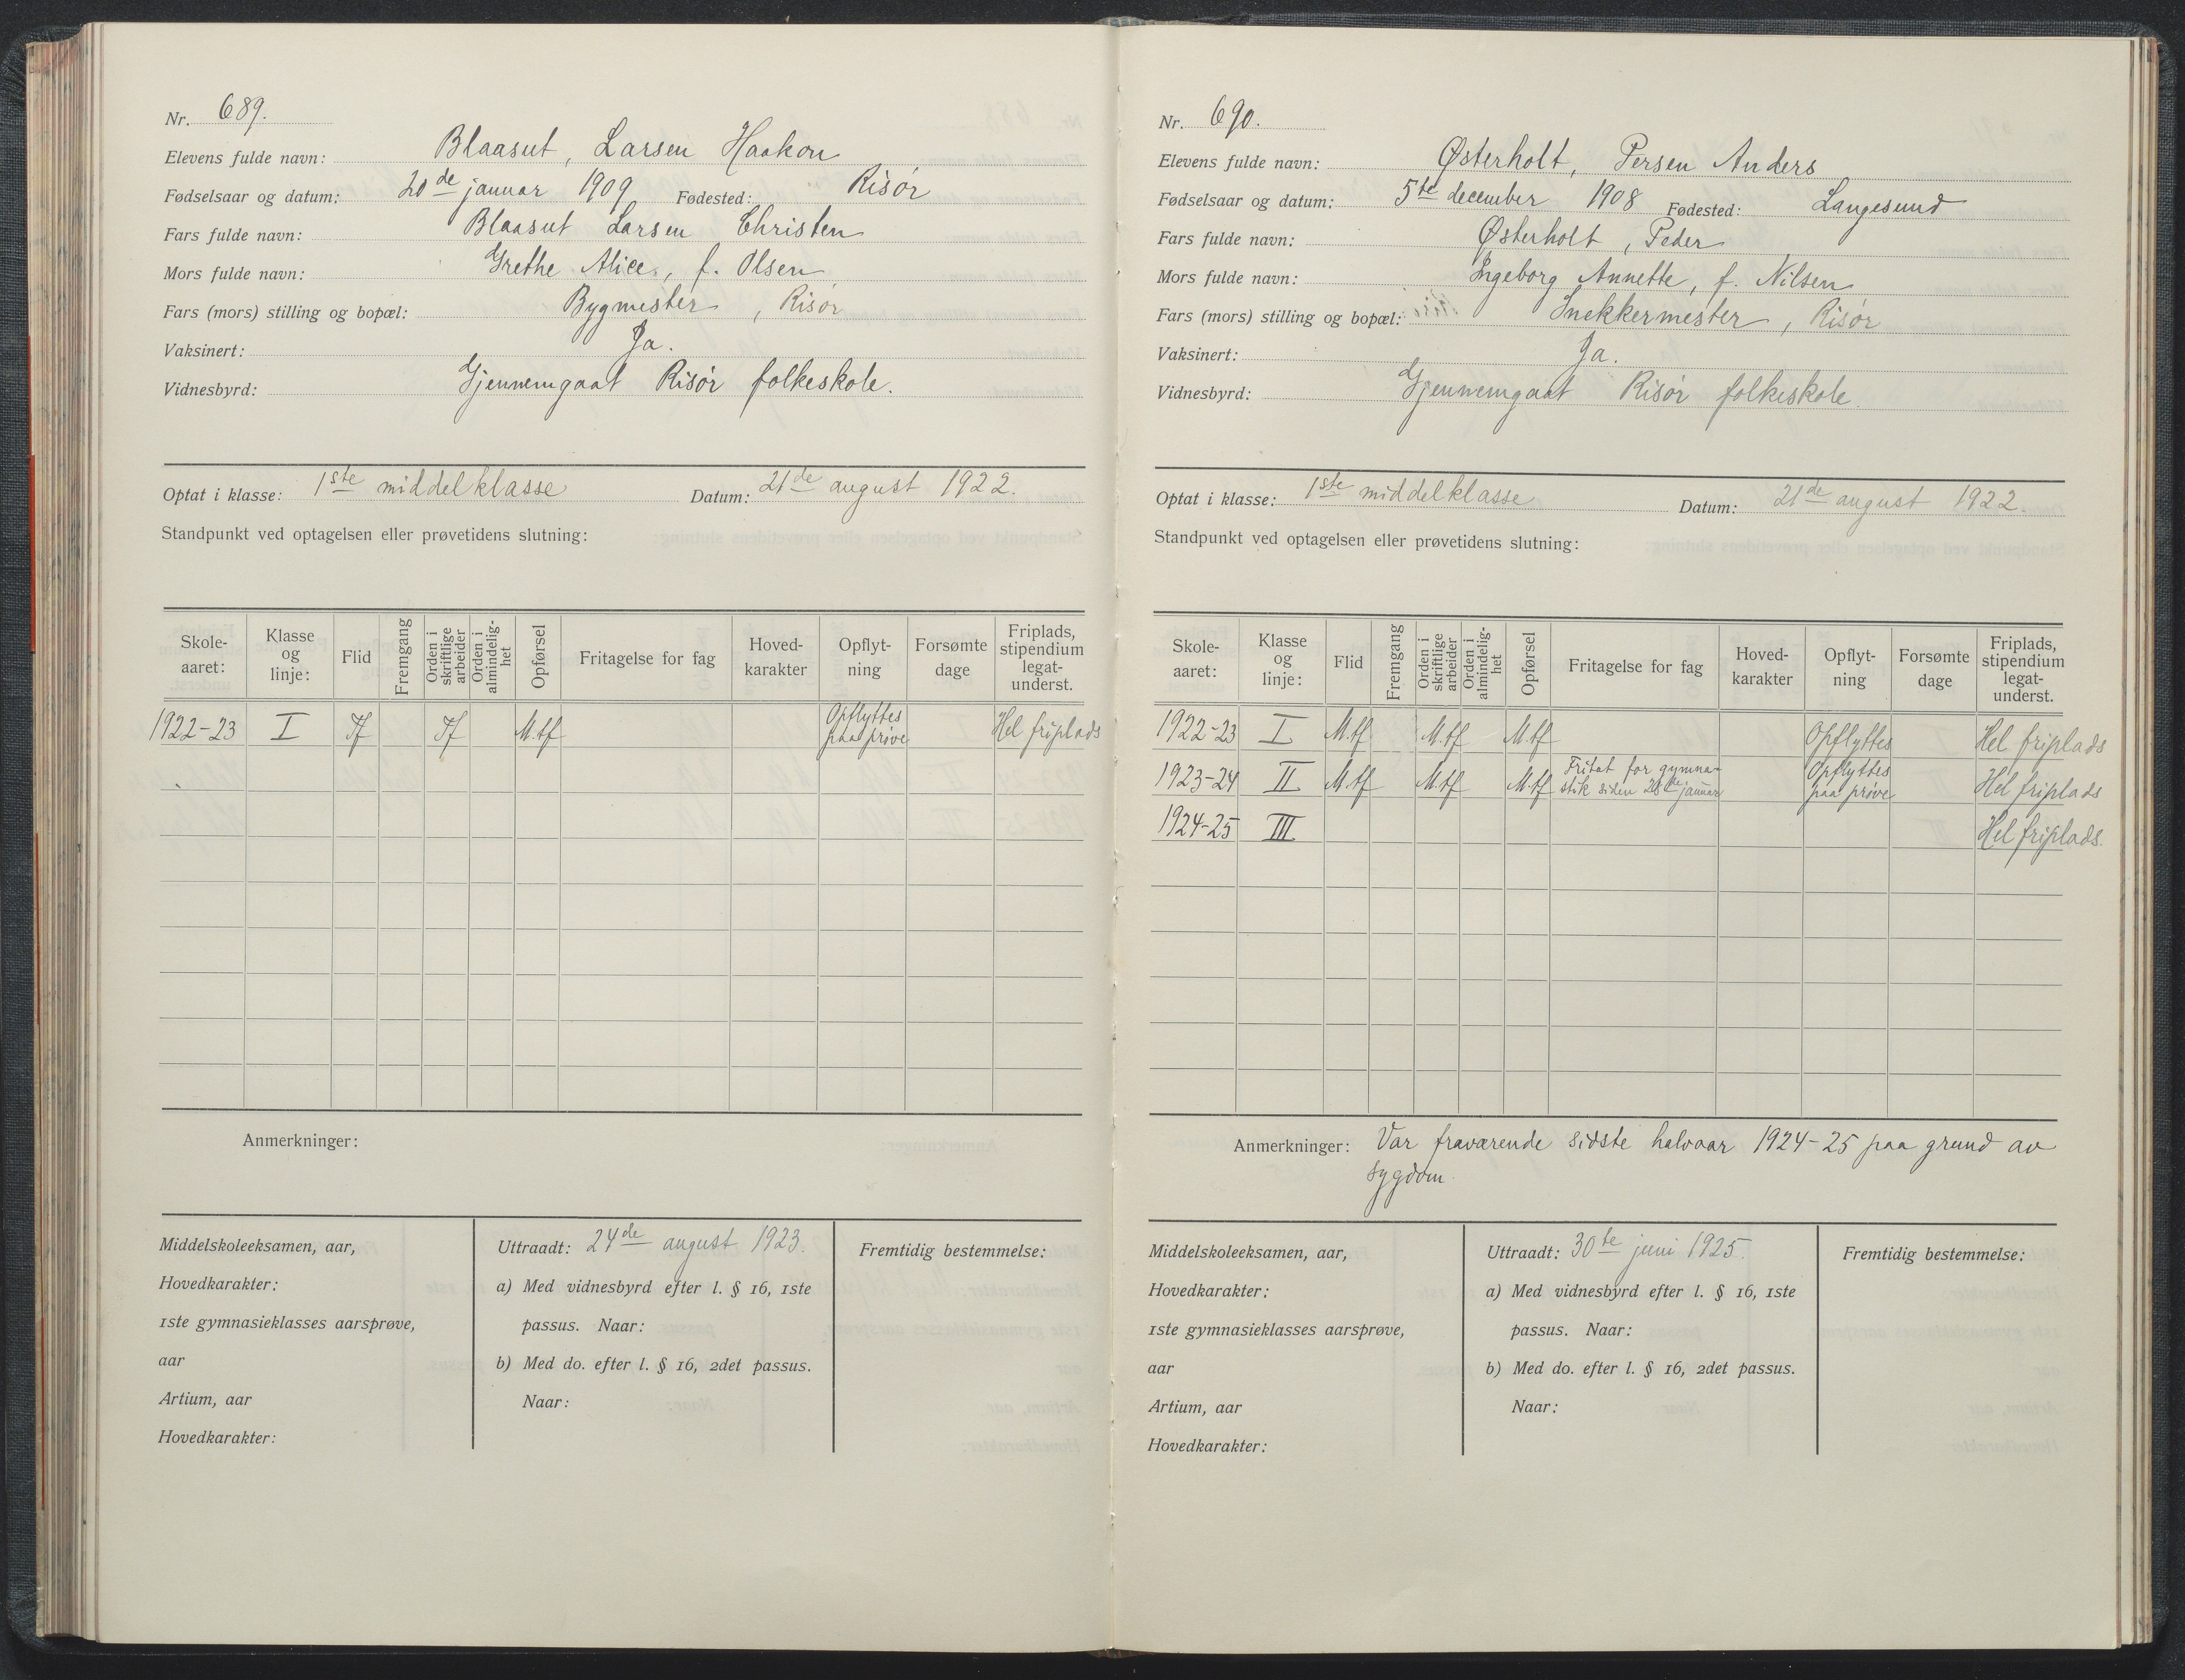 Nr. 689.
Elevens fulde navn: Blaasut, Larsen Haakon
Fødselsaar og datum: 20de januar 1909 Fødested: Risør
Fars fulde navn: Blaasut Larsen Christen
Mors fulde navn: Grethe Alice, f. Olsen
Fars (mors) stilling og bopæl: Bygmester, Risør
Vaksinert: Ja.
Vidnesbyrd: Gjennemgaat Risør folkeskole.
Optat i klasse: 1ste middelklasse Datum: 21de august 1922.
Standpunkt ved optagelsen eller prøvetidens slutning:
Skole-aaret: Klasse og linje: Flid Fremgang Orden i skriftlige arbeider Orden i almindelig-het Opførsel Fritagelse for fag Hoved-karakter Opflyt-ning Forsømte dage Friplads, stipendium legat-underst.
1922-23 I Tf Tf M.tf Opflyttes paa prøve Hel friplads
Anmerkninger:
Middelskoleeksamen, aar,
Hovedkarakter:
1ste gymnasieklasses aarsprøve,
aar
Artium, aar
Hovedkarakter:
Uttraadt: 24de august 1923.
a) Med vidnesbyrd efter l. § 16, 1ste
passus. Naar:
b) Med do. efter l. § 16, 2det passus.
Naar:
Fremtidig bestemmelse:
Nr. 690.
Elevens fulde navn: Østerholt, Persen Anders
Fødselsaar og datum: 5te december 1908 Fødested: Langesund
Fars fulde navn: Østerholt, Peder
Mors fulde navn: Ingeborg Annette, f. Nilsen
Fars (mors) stilling og bopæl: Snekkermester, Risør
Vaksinert: Ja.
Vidnesbyrd: Gjennemgaat Risør folkeskole
Optat i klasse: 1ste middelklasse Datum: 21de august 1922.
Standpunkt ved optagelsen eller prøvetidens slutning:
Skole-aaret: Klasse og linje: Flid Fremgang Orden i skriftlige arbeider Orden i almindelig-het Opførsel Fritagelse for fag Hoved-karakter Opflyt-ning Forsømte dage Friplads, stipendium legat-underst.
1922-23 I M.tf M.tf M.tf Opflyttes Hel friplads
1923-24 II M.tf M.tf M.tf Fritat for gymna-stik siden 28de januar Opflyttes paa prøve Hel friplads
1924-25 III Hel friplads.
Anmerkninger: Var fraværende sidste halvaar 1924-25 paa grund av
sygdom
Middelskoleeksamen, aar,
Hovedkarakter:
1ste gymnasieklasses aarsprøve,
aar
Artium, aar
Hovedkarakter:
Uttraadt: 30te juni 1925.
a) Med vidnesbyrd efter l. § 16, 1ste
passus. Naar:
b) Med do. efter l. § 16, 2det passus.
Naar:
Fremtidig bestemmelse: